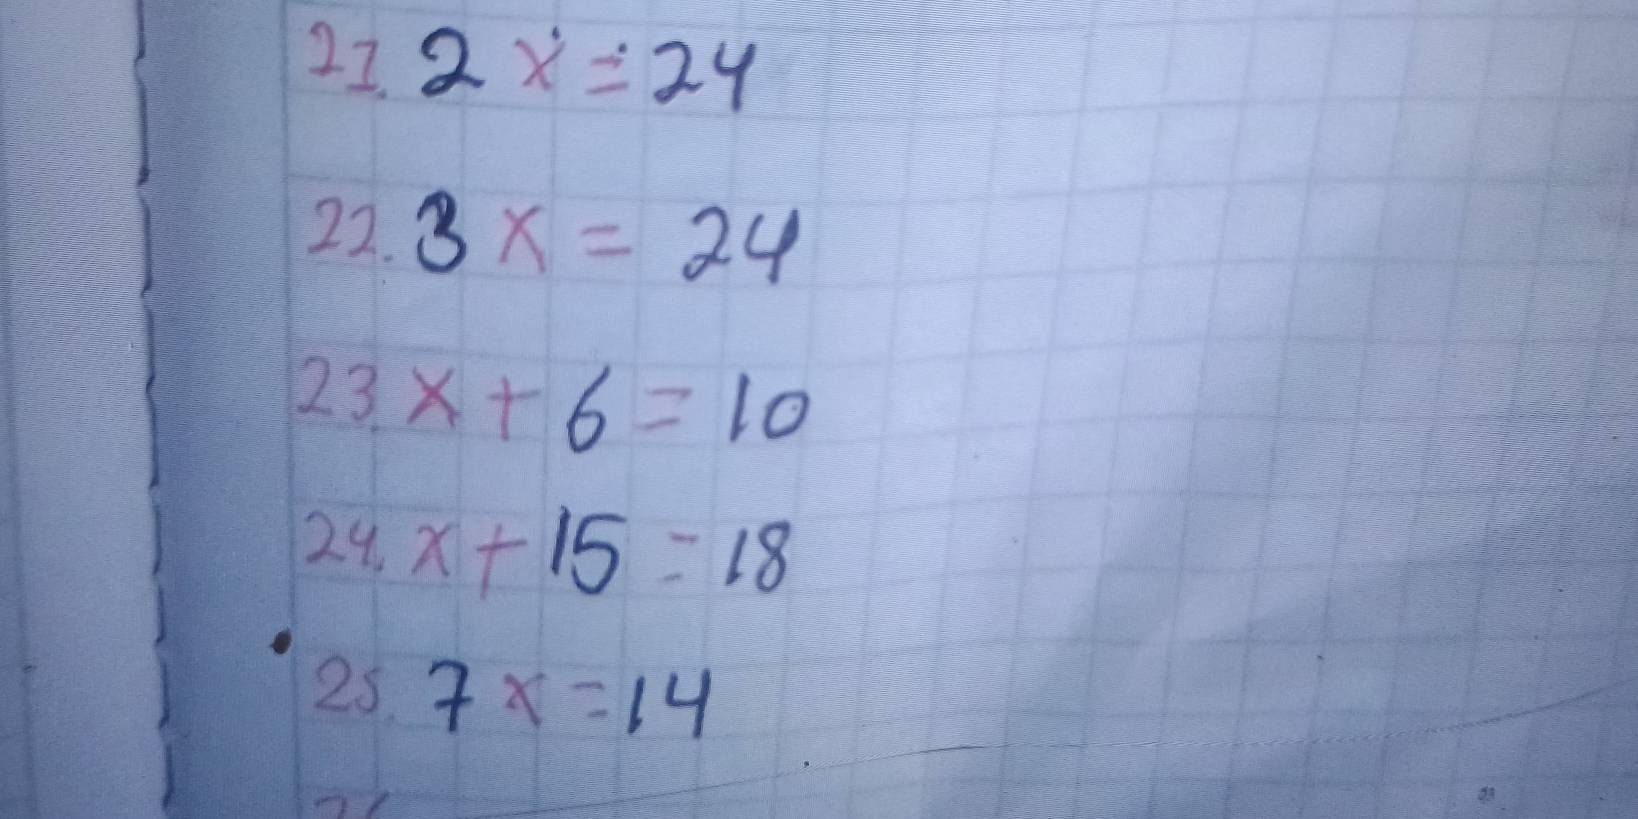 21. 2 x = 24
22. 3 x = 24
23. x + 6 = 10
24. x + 15 = 18
25. 7 x = 14